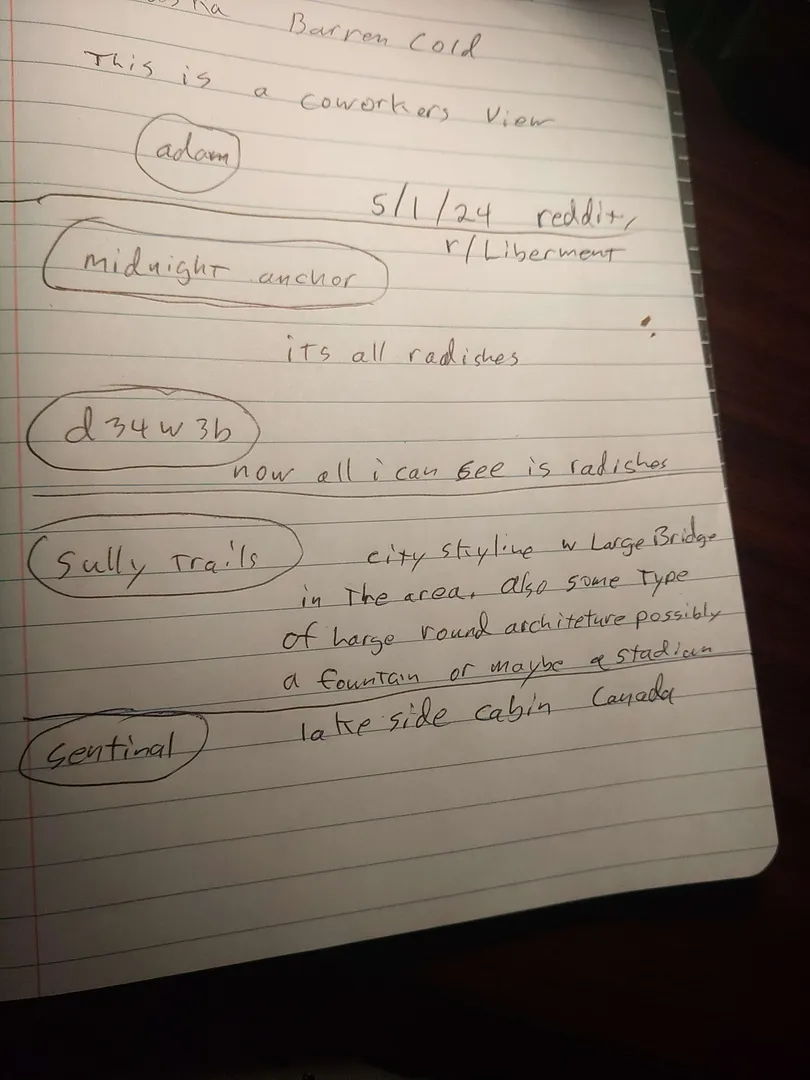 Barren Cold
This is a coworkers View
adam
5/1/24 reddit,
r/Liberment
midnight anchor
its all radishes
d34w3b
now all i can see is radishes
Sully Trails
city skyline w Large Bridge
in The area, also some Type
of large round architeture possibly
a fountain or maybe a stadium
Sentinal
lake side cabin Canada